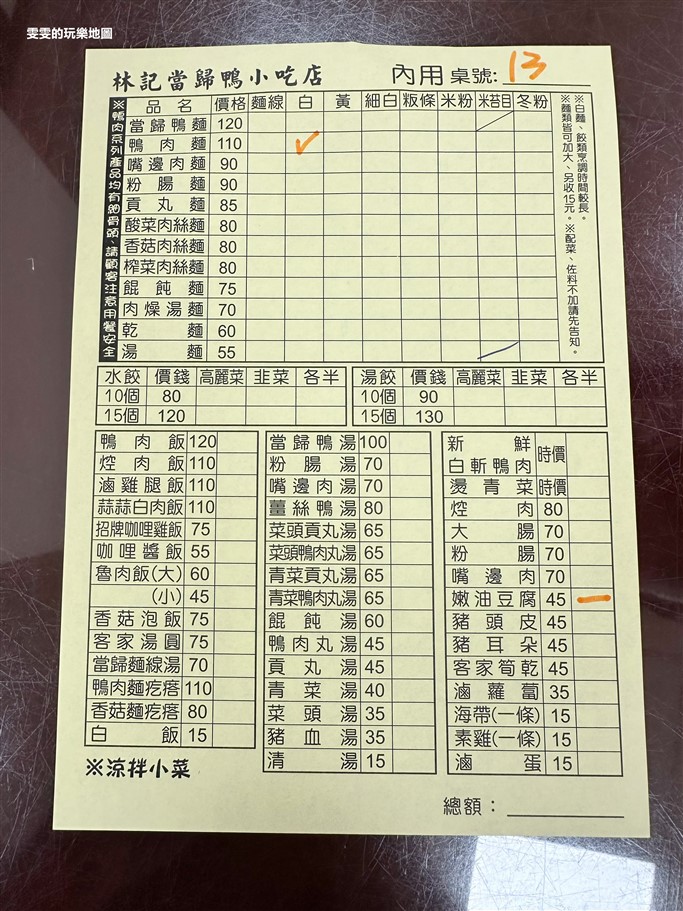 雯雯的玩樂地圖
林記當歸鴨小吃店 內用 桌號: 13
品名 價格 麵線 白 黃 細白 粄條 米粉 米苔目 冬粉
當歸鴨麵 120
鴨肉麵 110 ✓
嘴邊肉麵 90
粉腸麵 90
貢丸麵 85
酸菜肉絲麵 80
香菇肉絲麵 80
榨菜肉絲麵 80
餛飩麵 75
肉燥湯麵 70
乾麵 60
湯麵 55
※鴨肉系列產品均有細骨頭、請顧客注意用餐安全
※白麵、餃類烹調時間較長。
※麵類皆可加大、另收15元。※配菜、佐料不加請先告知。
水餃 價錢 高麗菜 韭菜 各半
10個 80
15個 120
湯餃 價錢 高麗菜 韭菜 各半
10個 90
15個 130
鴨肉飯 120
焢肉飯 110
滷雞腿飯 110
蒜蒜白肉飯 110
招牌咖哩雞飯 75
咖哩醬飯 55
魯肉飯(大) 60
(小) 45
香菇泡飯 75
客家湯圓 75
當歸麵線湯 70
鴨肉麵疙瘩 110
香菇麵疙瘩 80
白飯 15
當歸鴨湯 100
粉腸湯 70
嘴邊肉湯 70
薑絲鴨湯 80
菜頭貢丸湯 65
菜頭鴨肉丸湯 65
青菜貢丸湯 65
青菜鴨肉丸湯 65
餛飩湯 60
鴨肉丸湯 45
貢丸湯 45
青菜湯 40
菜頭湯 35
豬血湯 35
清湯 15
新鮮白斬鴨肉 時價
燙青菜 時價
焢肉 80
大腸 70
粉腸 70
嘴邊肉 70
嫩油豆腐 45 一
豬頭皮 45
豬耳朵 45
客家筍乾 45
滷蘿蔔 35
海帶(一條) 15
素雞(一條) 15
滷蛋 15
※涼拌小菜
總額：